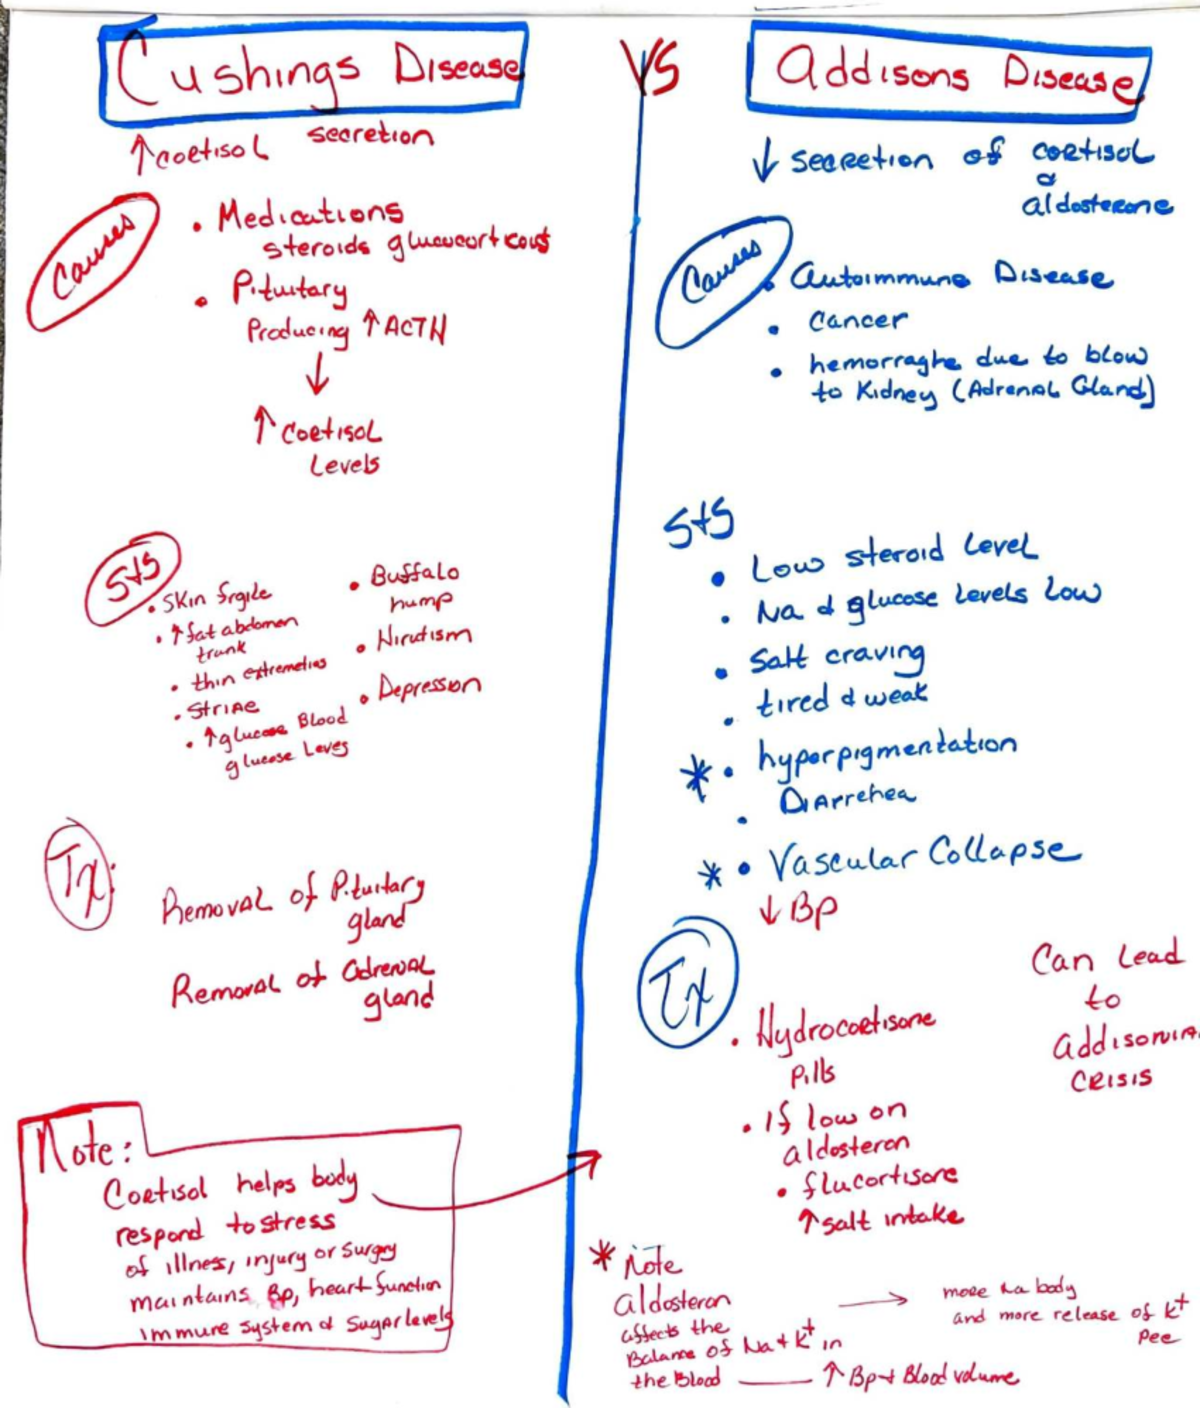 Cushings Disease
↑ cortisol secretion
Causes
• Medications
steroids glucocorticoid
• Pituitary
Producing ↑ ACTH
↓
↑ Cortisol
Levels
S+S
• Skin frgile
• ↑ fat abdomen
trunk
• thin extremeties
• Striae
• ↑ glucose Blood
glucose Leves
• Buffalo
hump
• Hirutism
• Depression
Tx:
Removal of Pituitary
gland
Removal of adrenal
gland
Note:
Cortisol helps body
respond to stress
of illness, injury or surgry
maintains Bp, heart function
immune system & sugar levels
VS
Addisons Disease
↓ secretion of cortisol
&
aldosterone
Causes
• Autoimmune Disease
• Cancer
• hemorraghe due to blow
to Kidney (Adrenal Gland)
S+S
• Low steroid Level
• Na & glucose Levels Low
• Salt craving
• tired & weak
* • hyperpigmentation
• Diarrehea
* • Vascular Collapse
↓ Bp
Can Lead
to
addisonia
crisis
Tx
• Hydrocortisone
pills
• If low on
aldosteron
• flucortisore
↑ salt intake
* Note
aldosteron
affects the
Balance of Na + K+ in
the Blood —— ↑ Bp + Blood volume
→ more na body
and more release of K+
Pee